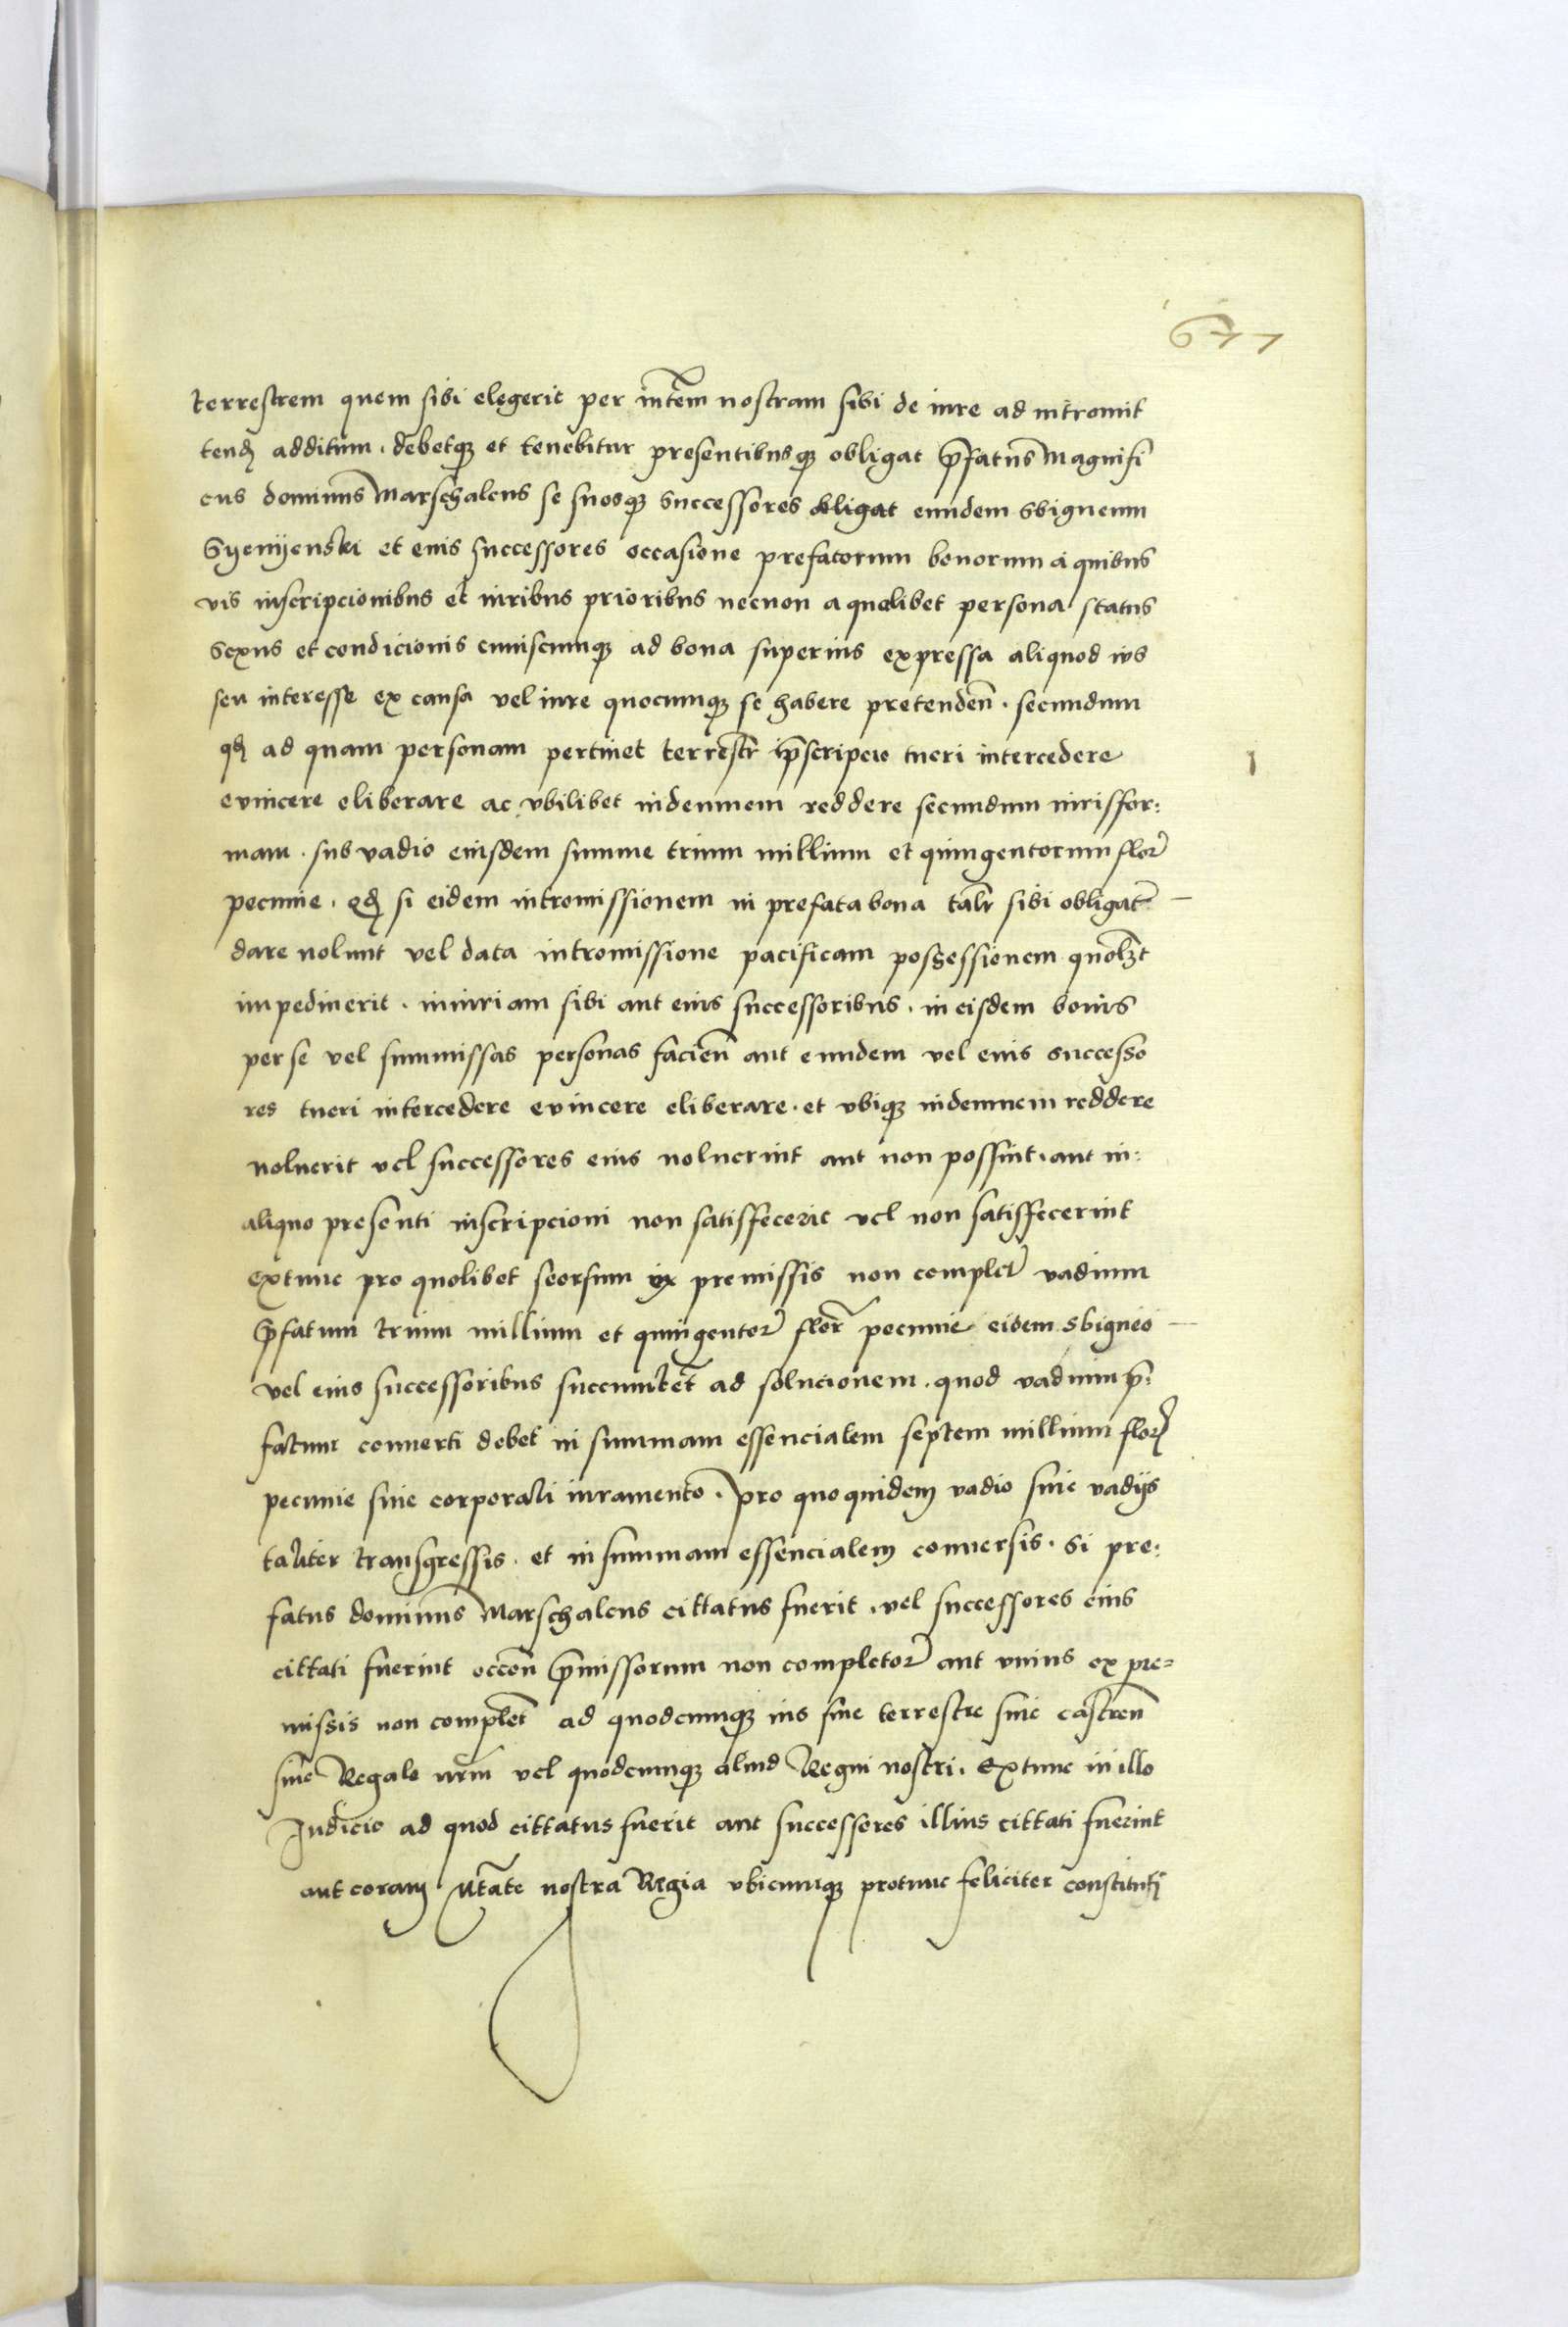 671
terrestrem quem sibi elegerit per mtem nostram sibi de iure ad intromit
tend additum. debetqz et tenebitur presentibusqz obligat pfatus Magnifi
cus dominus Marschalcus se suosqz successores obligat eundem Sbigneum
Syenyenski et eius successores occasione prefatorum bonorum a quibus
vis inscripcionibus et iuribus prioribus necnon a qualibet persona status
sexus et condicionis cuiuscumqz ad bona superius expressa aliquod ius
seu interesse ex causa vel iure quocumqz se habere pretenden. secundum
qd ad quam personam pertinet terrestr pscripcio tueri intercedere
evincere eliberare ac vbilibet indemnem reddere secundum iurisfor:
mam. sub vadio eiusdem summe trium millium et quingentorum flor
pecunie. Qd si eidem intromissionem in prefata bona talr sibi obligat
dare nolunt vel data intromissione pacificam possessionem quolzt
impediuerit. iniuriam sibi aut eius successoribus. in eisdem bonis
per se vel summissas personas facien aut eundem vel eius successo
res tueri intercedere evincere eliberare. et vbiqz indemnem reddere
noluerit vel successores eius noluerint aut non possint. aut in:
aliquo presenti inscripcioni non satisfecerit vel non satisfecerint
extunc pro quolibet seorsum ex premissis non complet vadium
pfatum trium millium et quingentor flor pecunie eidem Sbigneo
vel eius successoribus succumbet ad solucionem. quod vadium p:
fatum conuerti debet in summam essencialem septem millium flor
pecunie sine corporali iuramento. Pro quoquidem vadio siue vadys
taliter transgressis. et in summam essencialem conuersis. Si pre:
fatus dominus Marschalcus cittatus fuerit. vel successores eius
cittati fuerint occon pmissorum non completor aut vnius ex pre=
missis non complet ad quodcumqz ius siue terrestre siue castren
siue Regale nrm vel quodcumqz aliud Regni nostri. Extunc in illo
Iudicio ad quod cittatus fuerit aut successores illius cittati fuerint
aut coram Mtate nostra Regia vbicumqz protunc feliciter constitut